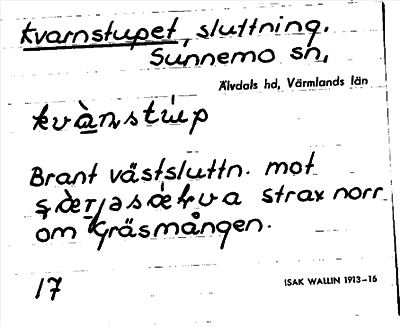 Kvarnstupet, sluttning.
Sunnemo sn,
Älvdals hd, Värmlands län
kvà̱nstup
Brant västsluttn. mot
strax norr
om Gräsmången.
17
ISAK WALLIN 1913–16